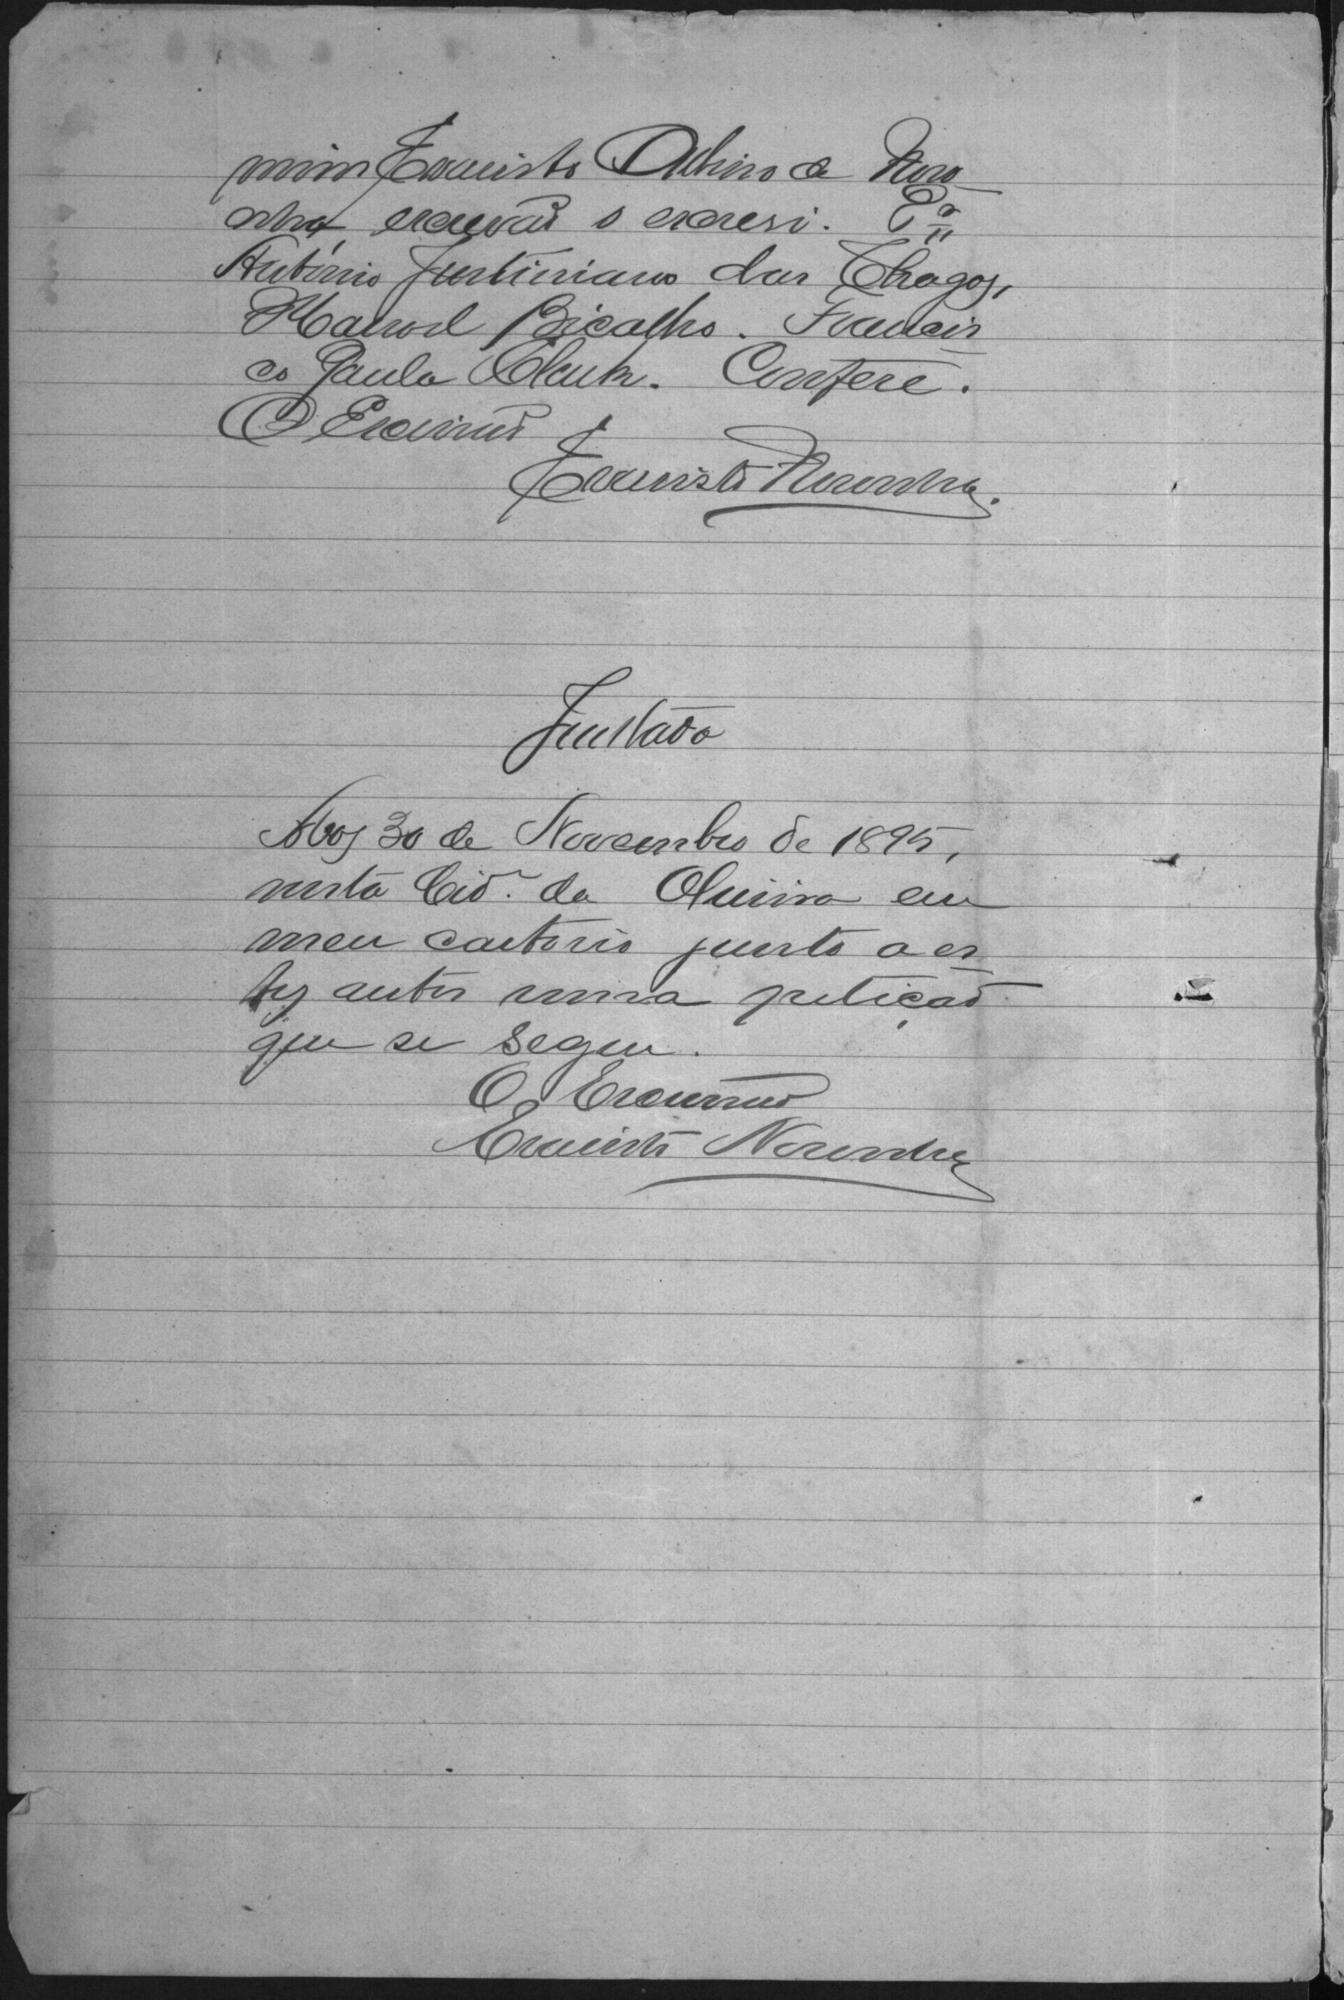 mim Evaristo Adrino de Noro
nha, escrivão o escrevi.
Antônio Justiniano das Chagas,
Manoel Bicalho. Francis
co Paula
Confere.
O Escrivão
Evaristo Noronha.
Juntada
Aos 30 de Novembro de 1895,
nesta Cid.e de Oliveira em
meu cartorio junto a es
tes autos uma petição
que se segue.
O Escrivão
Evaristo Noronha